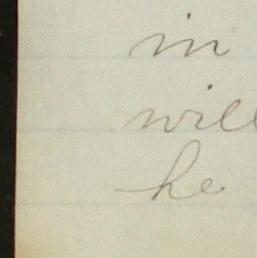 in
will
he